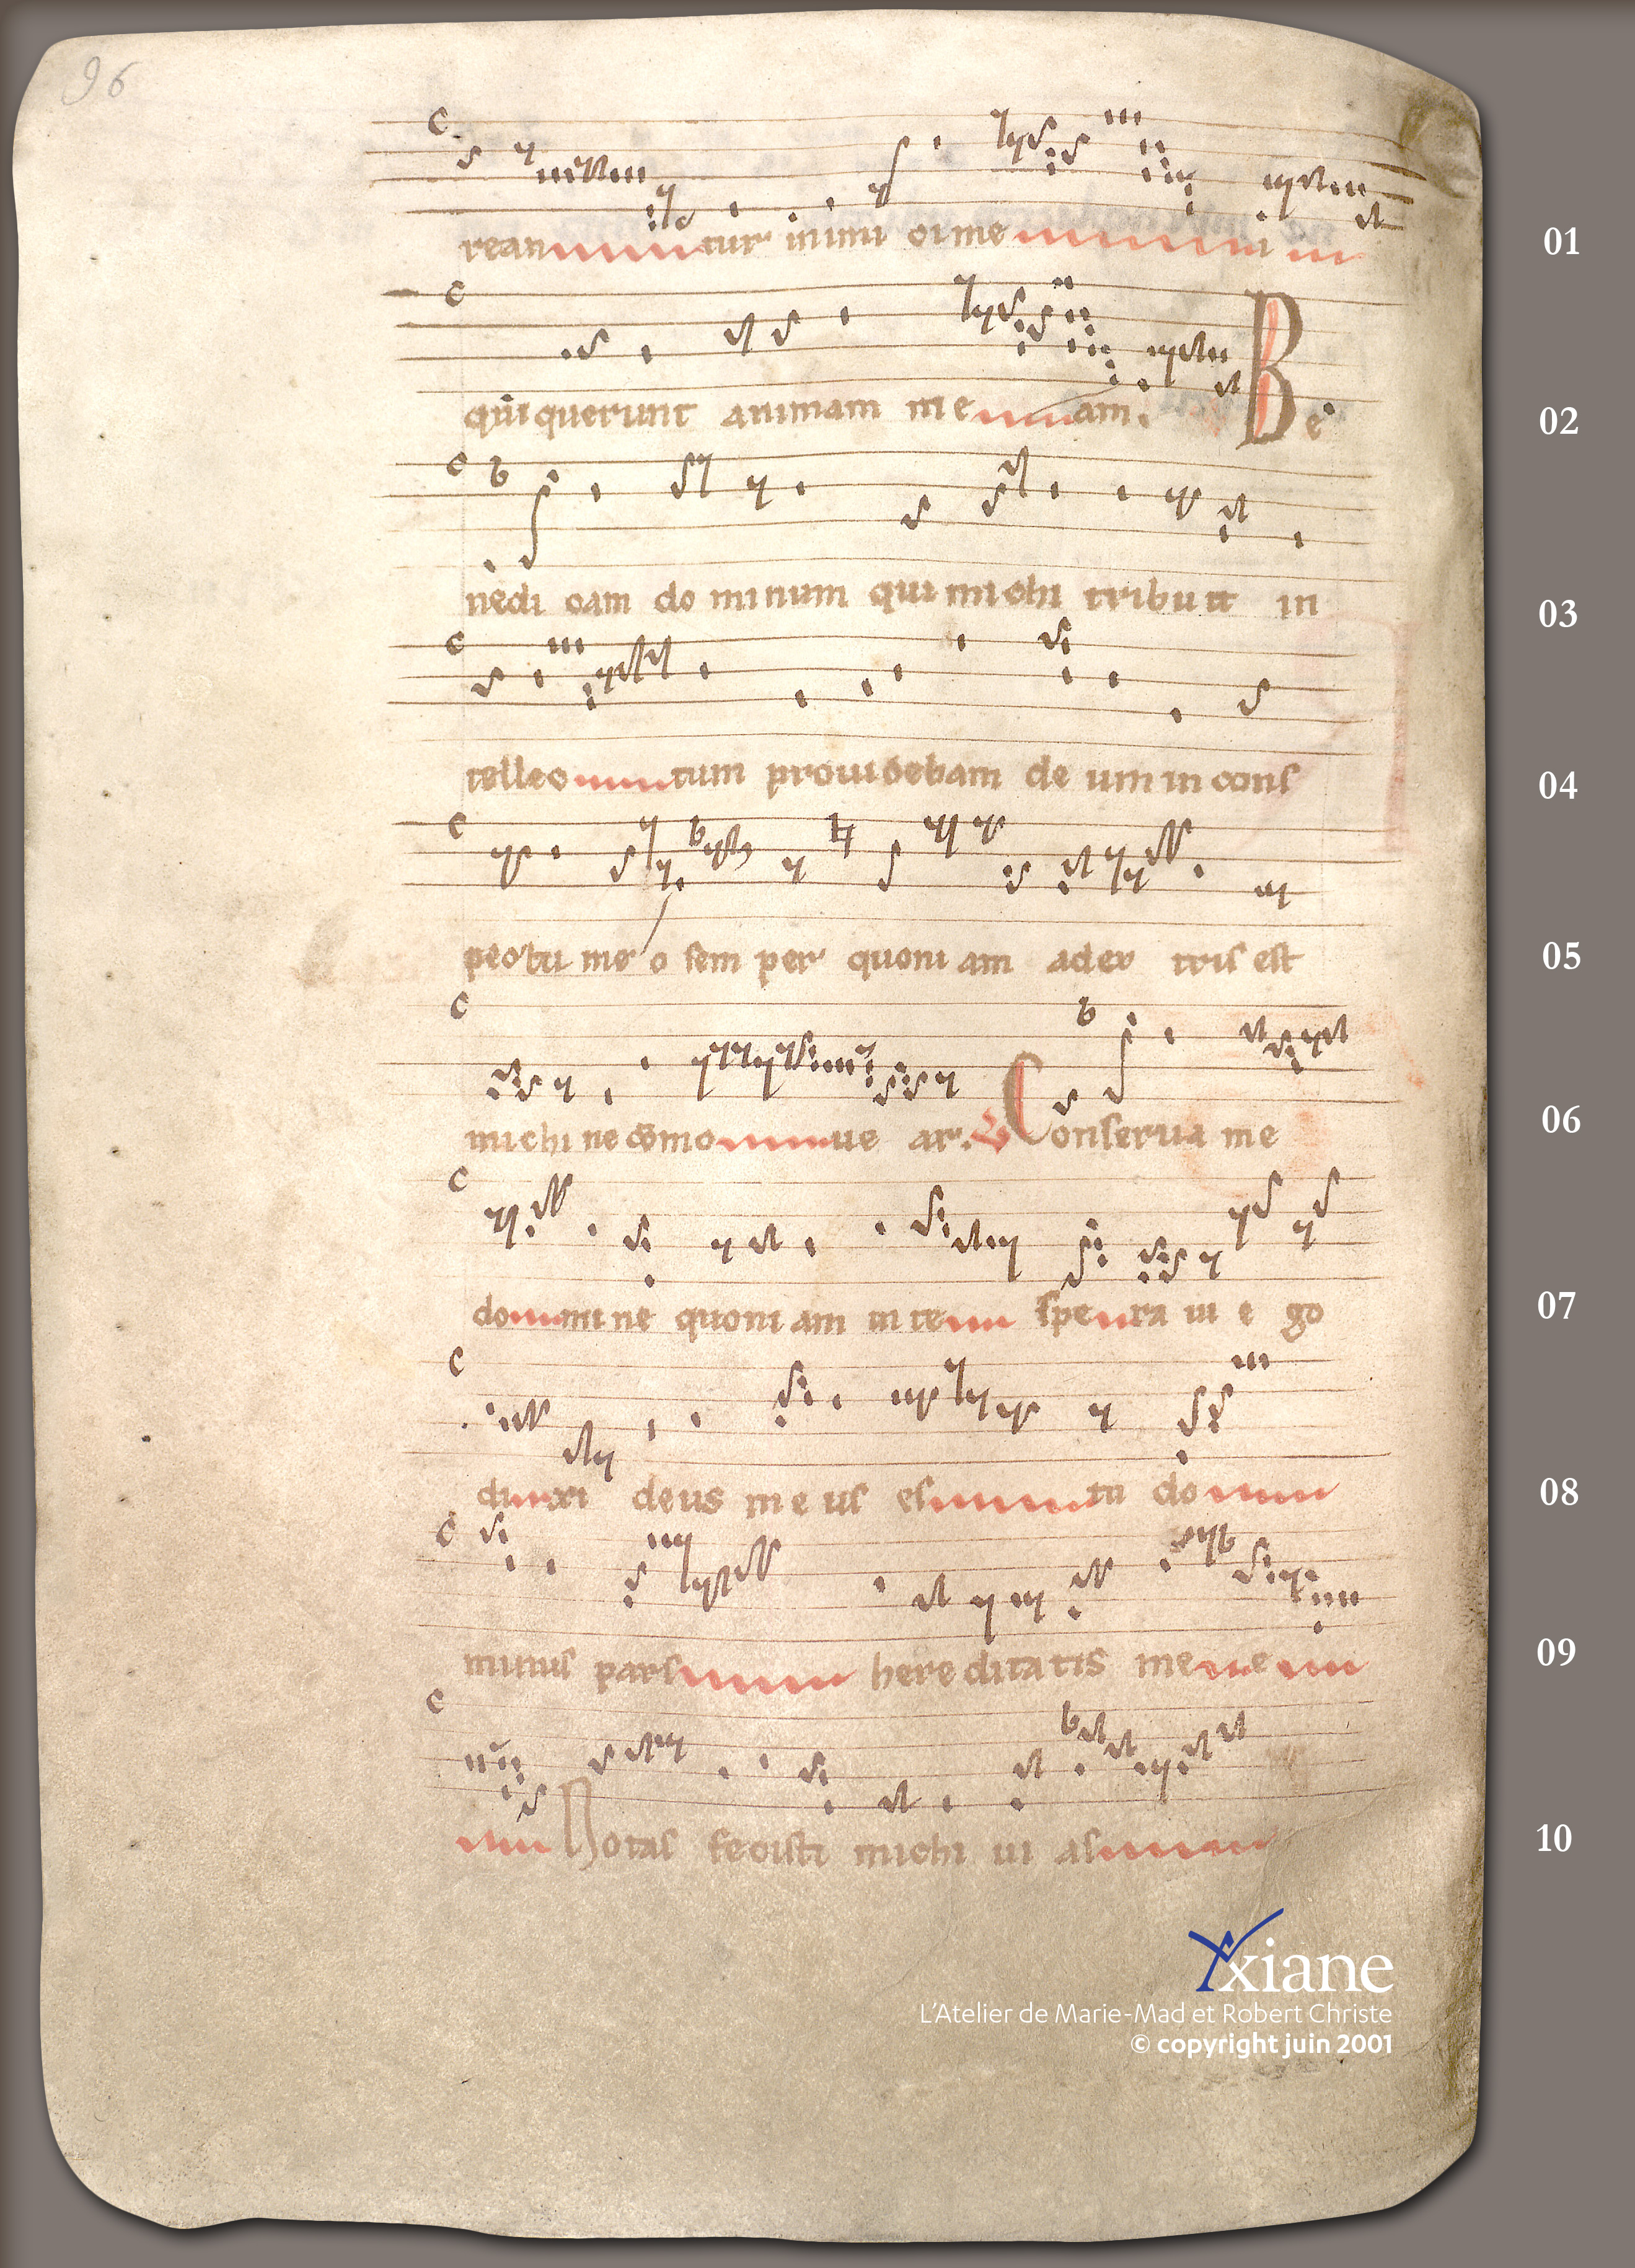 96
reantur inimi ci me i 01
qui querunt animam me am. Be 02
nedi cam do minum qui michi tribu it in 03
tellec tum prouidebam de um in cons 04
pectu me o sem per quoni am adex tris est 05
michi ne cōmo ue ar. V Conserua me 06
do mi ne quoni am in te spe ra ui e go 07
di xi deus me us es tu do 08
minus pars here ditatis me e 09
Notas fecisti michi ui as 10
C
C
C b
C
C b
C b
C
C
C b
C b
Yxiane
L'Atelier de Marie-Mad et Robert Christe
© copyright juin 2001